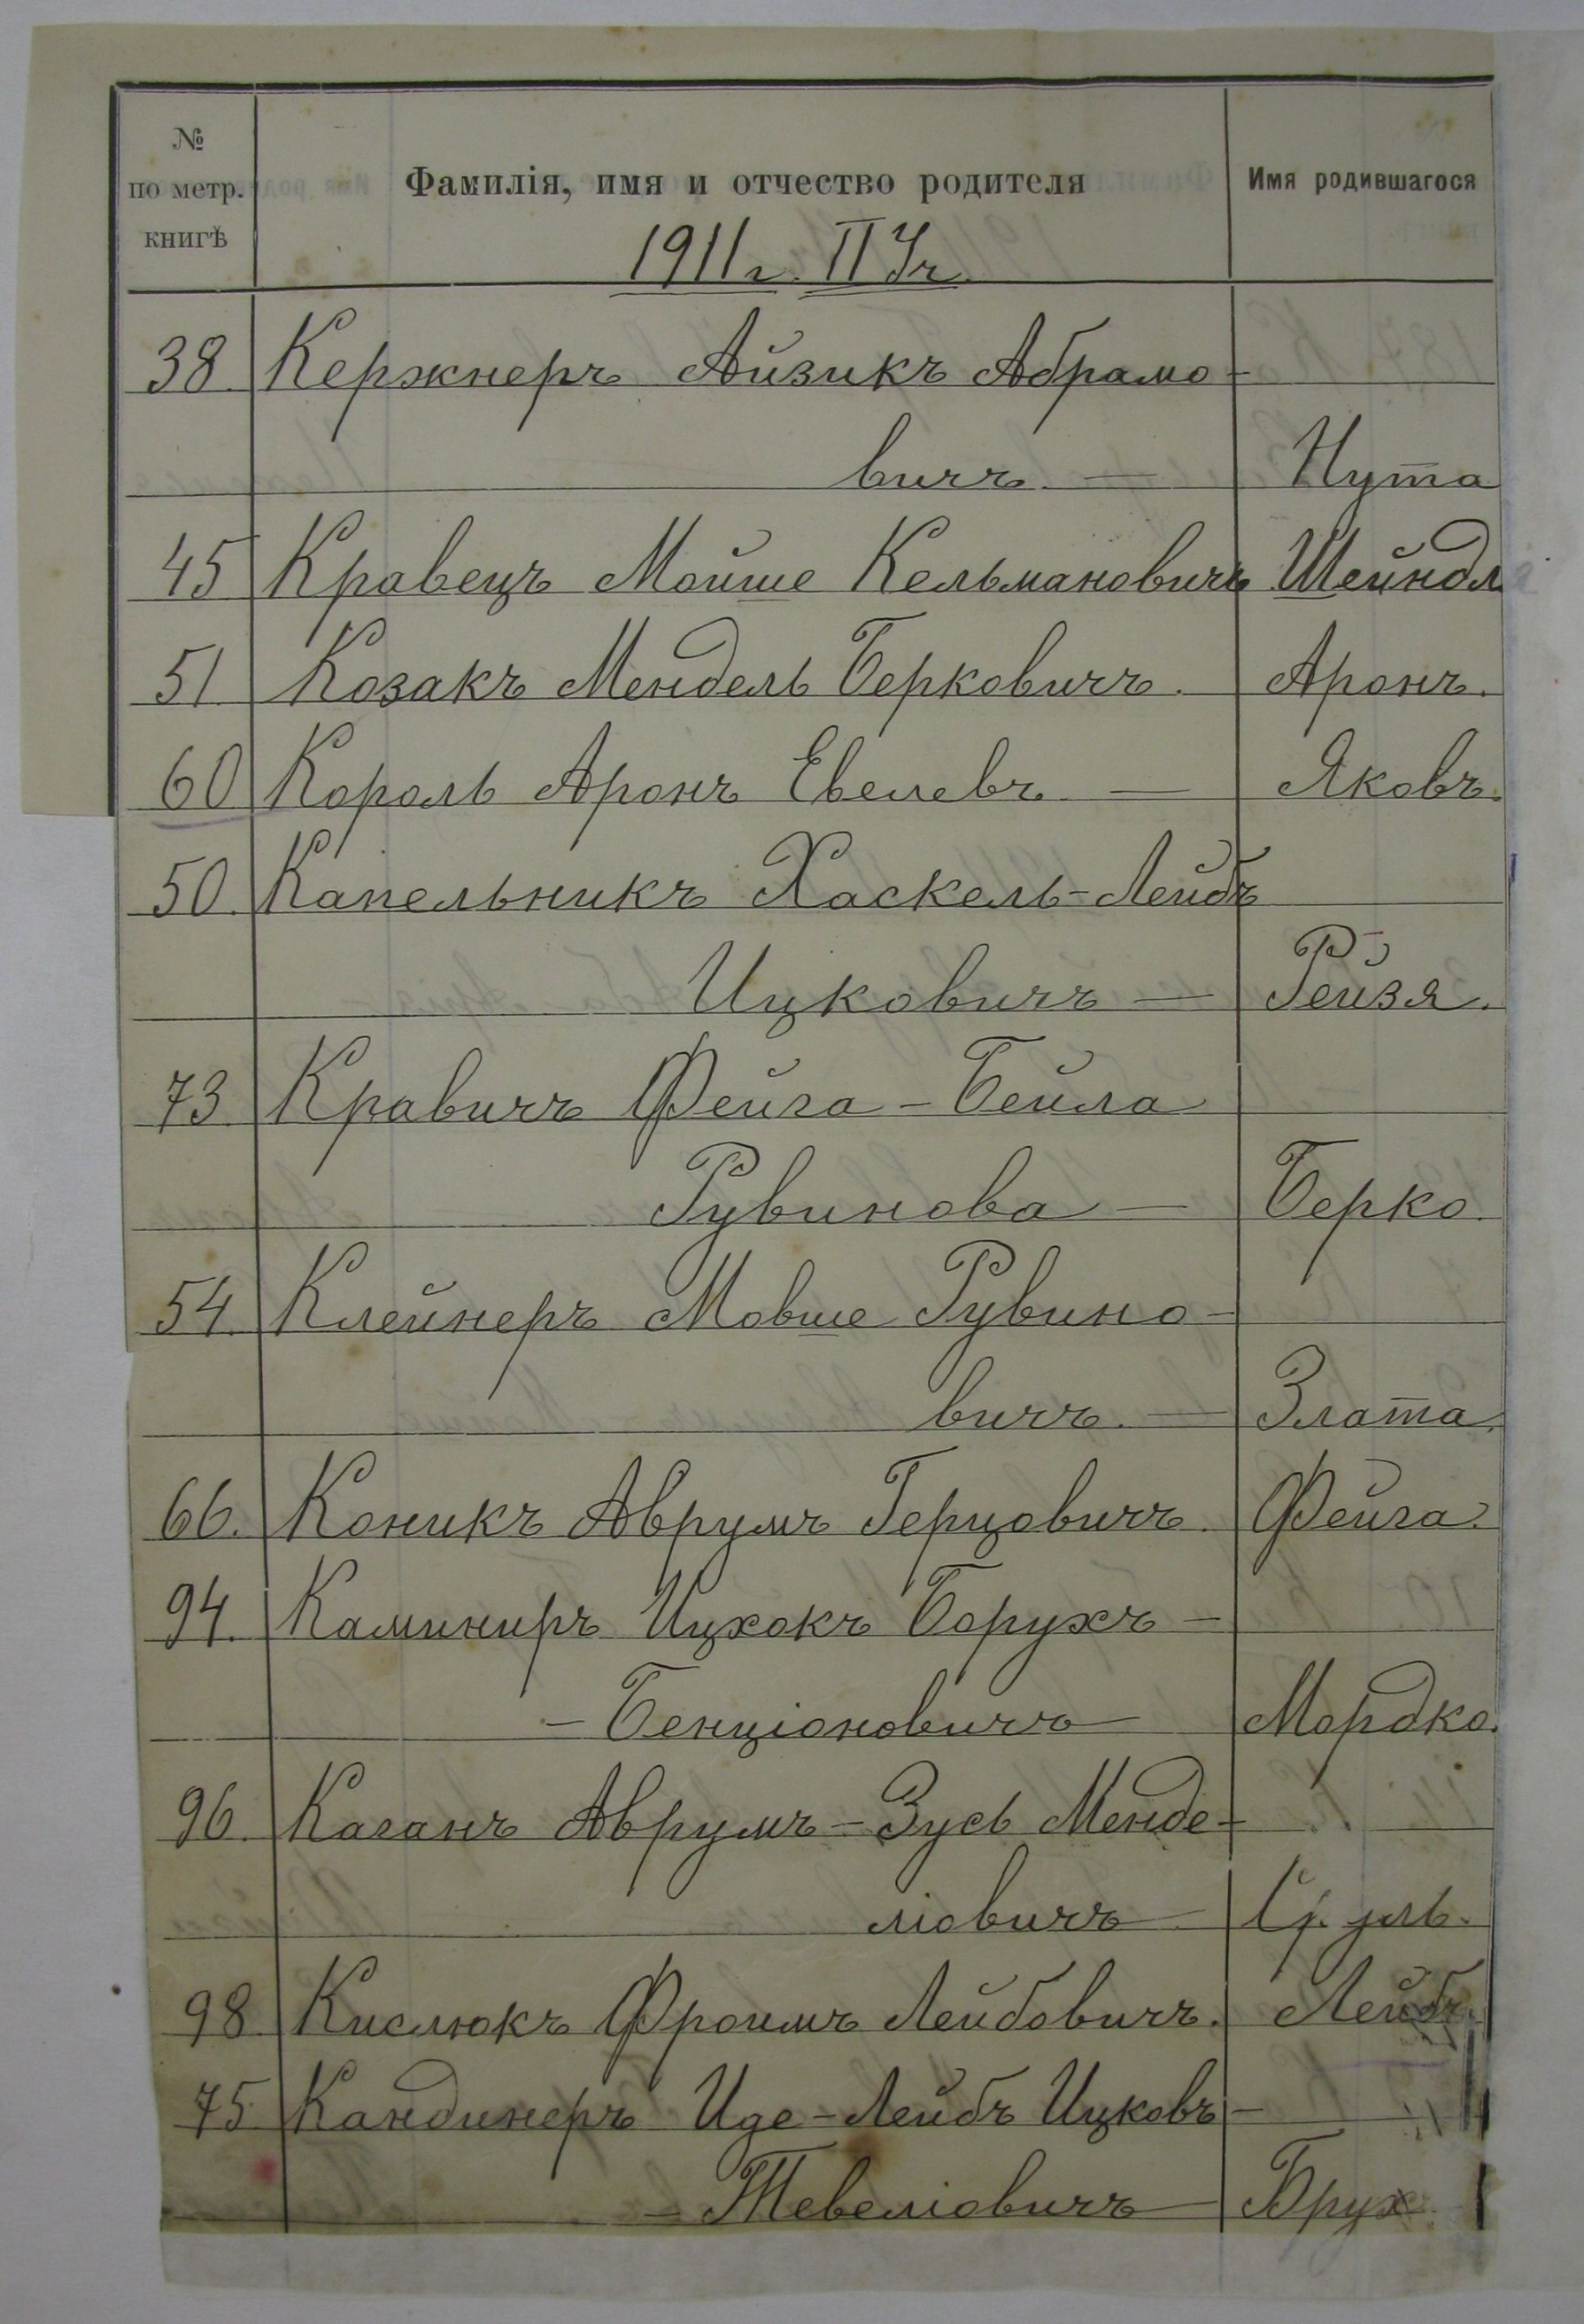 № по метр. книгѣ | Фамилія, имя и отчество родителя | Имя родившагося
1911 г. II Уч.
38. Кержнеръ Айзикъ Абрамо-
вичъ. — Нута
45 Кравецъ Мойше Кельмановичъ Шейндл
51. Козакъ Мендель Берковичъ. Аронъ.
60 Король Аронъ Евелевъ — Яковъ.
50. Капельникъ Хаскель-Лейбъ
Ицковичъ — Рейзя.
73. Кравичъ Фейга-Бейла
Рувинова — Берко.
54. Клейнеръ Мовше Рувино-
вичъ. — Злата.
66. Коникъ Аврумъ Герцовичъ. Фейга.
94. Каминиръ Ицхокъ Борухъ-
-Бенціоновичъ — Мордко.
96. Каганъ Аврумъ-Зусь Менде-
ліовичъ — Сруль.
98 Кислюкъ Фроимъ Лейбовичъ. Лейбъ.
75 Кандинеръ Иде-Лейбъ Ицковъ-
-Тевеліовичъ — Брух